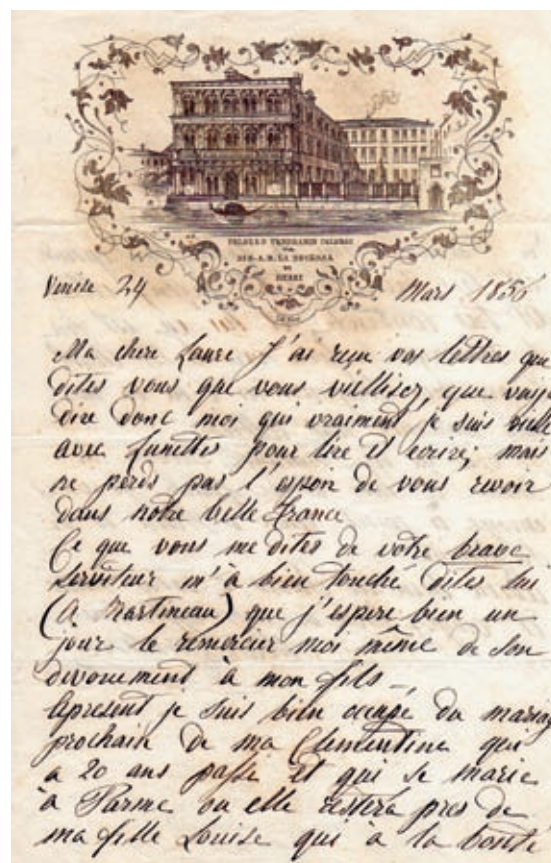 PALAZZO VENDRAMIN CALERGI
DI S. A. R. LA DUCHESSA
DI
BERRI
Venise 24 Mars 1856
Ma chere Laure J'ai reçu vos lettres que
dites vous que vous vieillisez, que vaije
dire donc moi qui vraiment je suis vieille
avec lunettes pour lire et ecrire; mais
ne perds pas l'espoir de vous revoir
dans notre belle France
Ce que vous me dites de votre brave
serviteur m'à bien touché dites lui
(à Martineau) que j'espere bien un
jour le remercier moi même de son
devouement à mon fils –
Apresent je suis bien occupé du mariage
prochain de ma Clementine qui
a 20 ans passé et qui se marie
à Parme ou elle restera pres de
ma fille Louise qui à la bonté